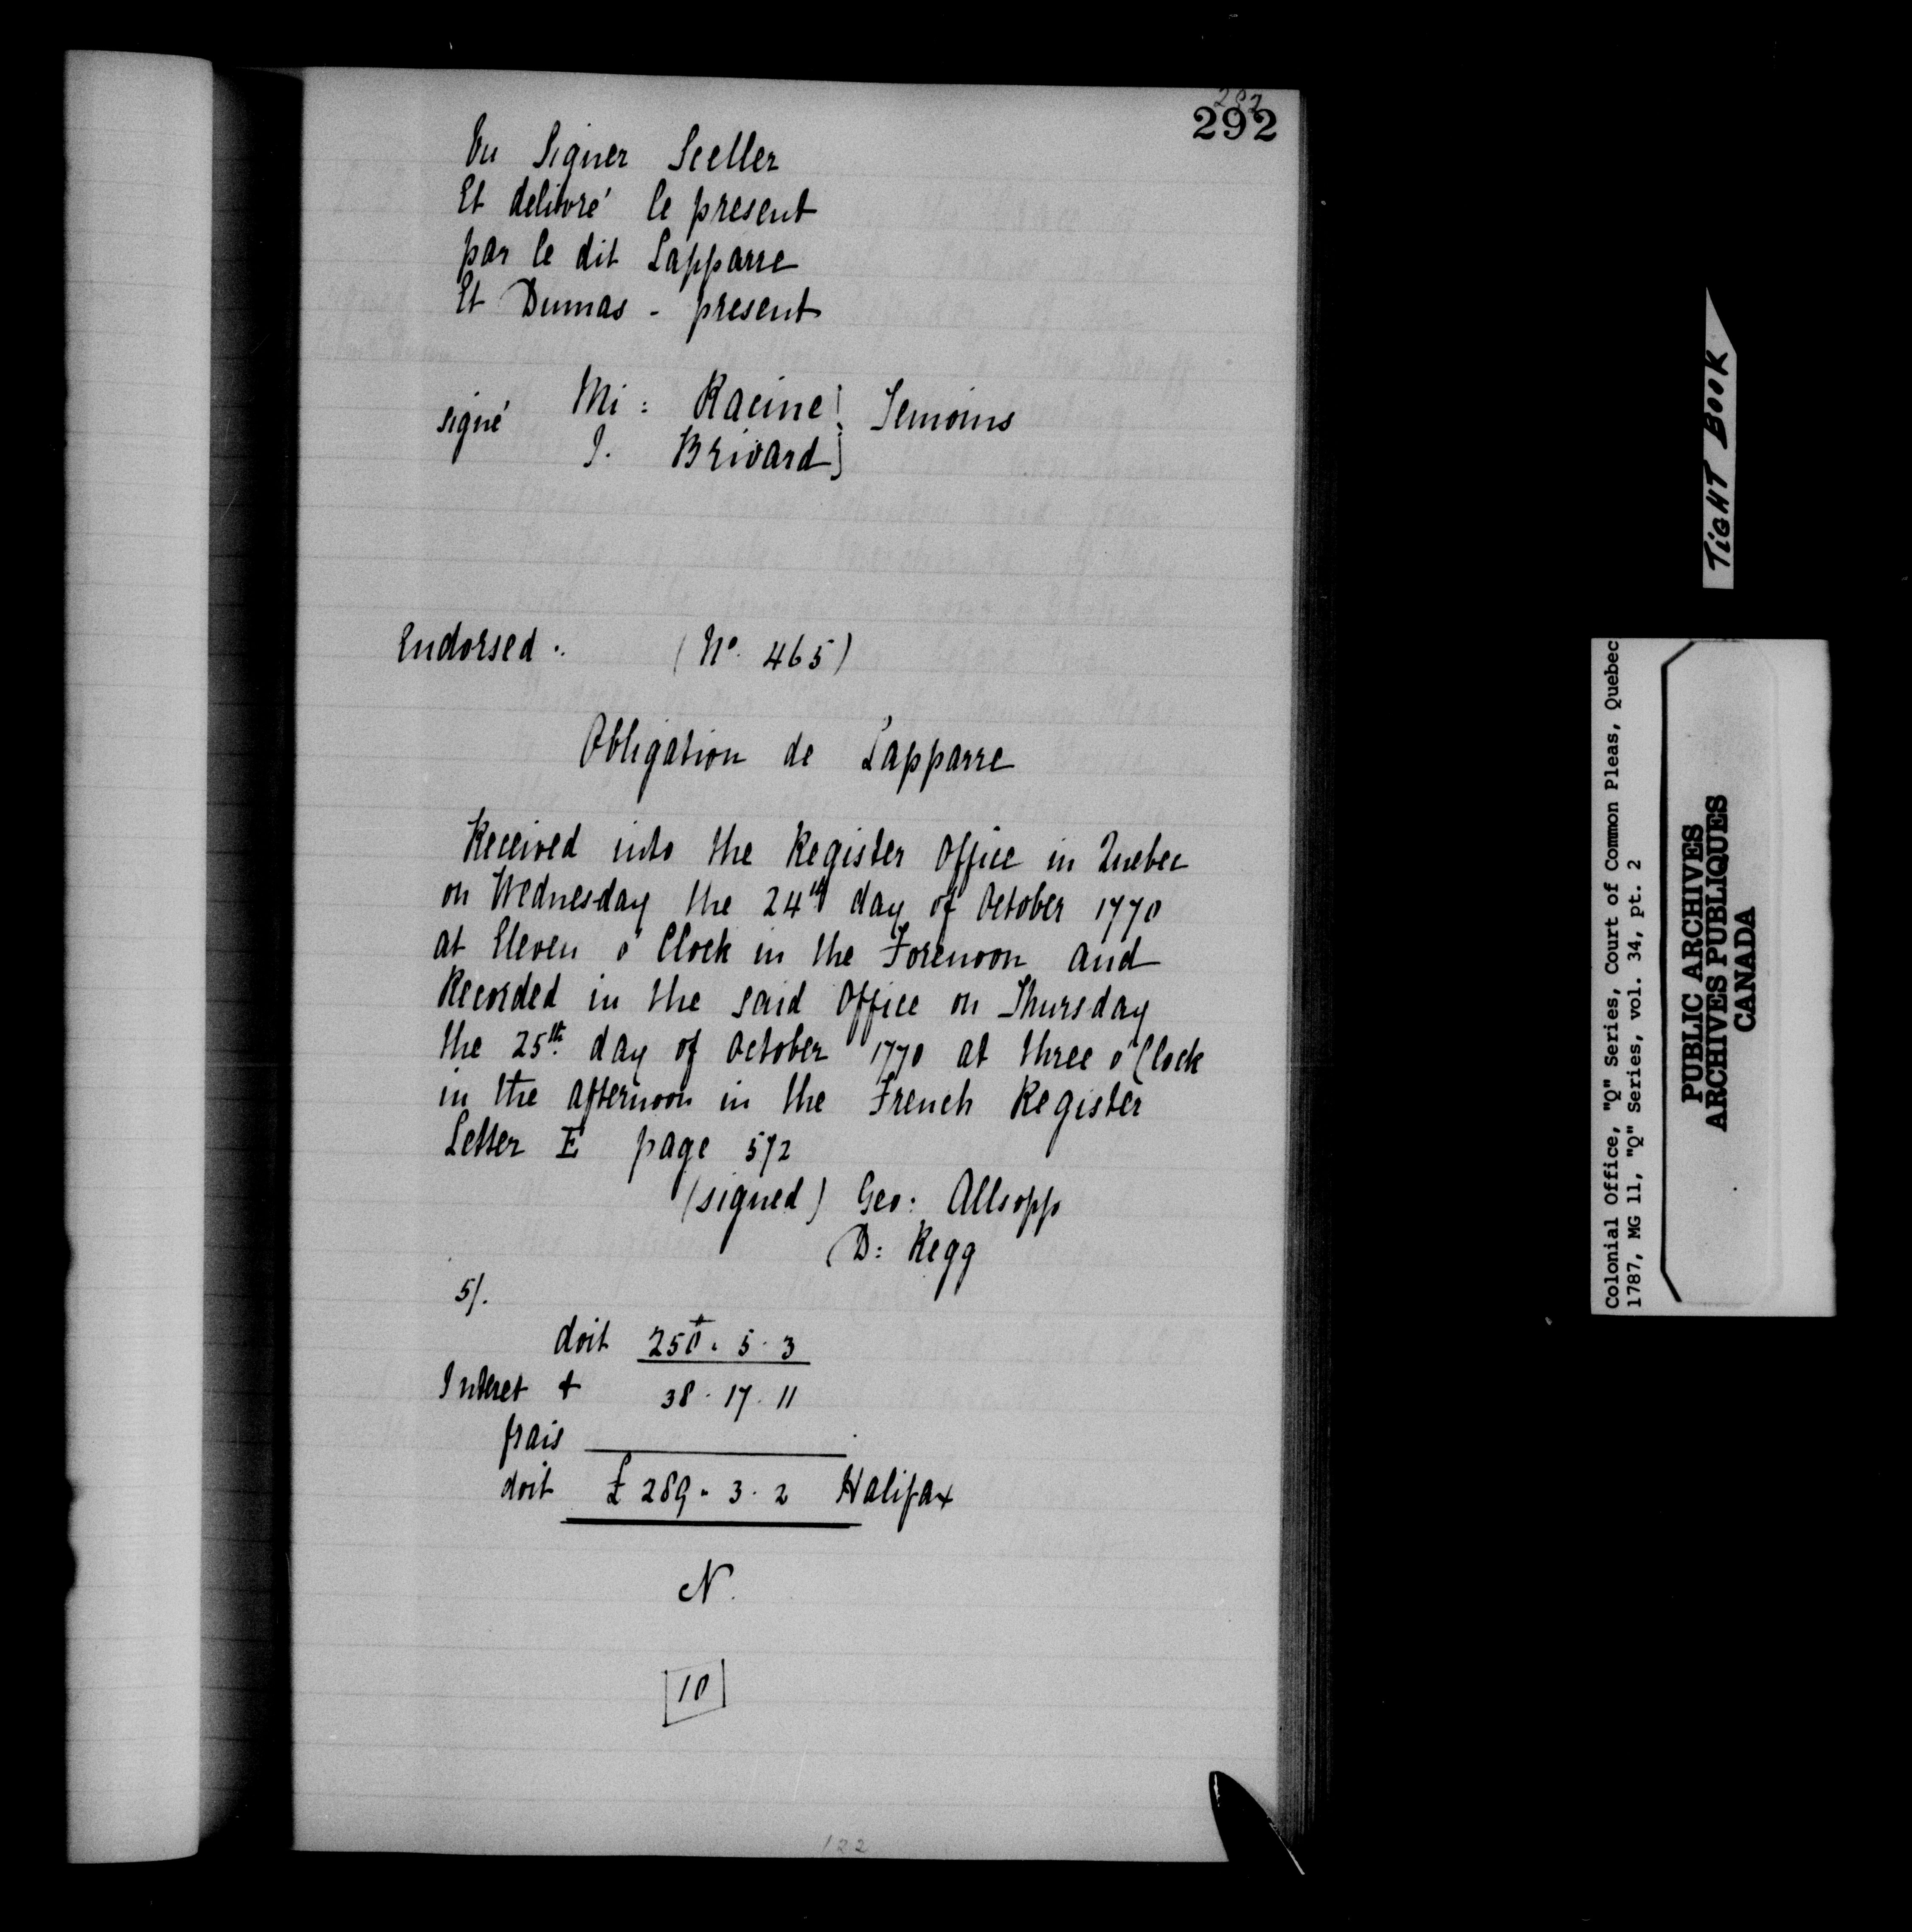 282
292
Vu Signer Sceller
Et delibvré le present
par le dit Lapparre
Et Dumas - present
signé Mi : Racine } Temoins
J. Brivard }
Endorsed :. (No. 465)
Obligation de Lapparre
Received into the Register Office in Quebec
on Wednesday the 24th day of October 1770
at Eleven o'Clock in the Forenoon and
Recorded in the said Office on Thursday
the 25th day of October 1770 at three o'Clock
in the afternoon in the French Register
Letter E page 572
(signed) Geo: Allsopp
D: Regg
5/.
doit 250 . 5 . 3
Interet + 38 . 17 . 11
frais
doit £ 289 . 3 . 2 Halifax
N.
10
122
TIGHT BOOK
Colonial Office, "Q" Series, Court of Common Pleas, Quebec
1787, MG 11, "Q" Series, vol. 34, pt. 2
PUBLIC ARCHIVES
ARCHIVES PUBLIQUES
CANADA